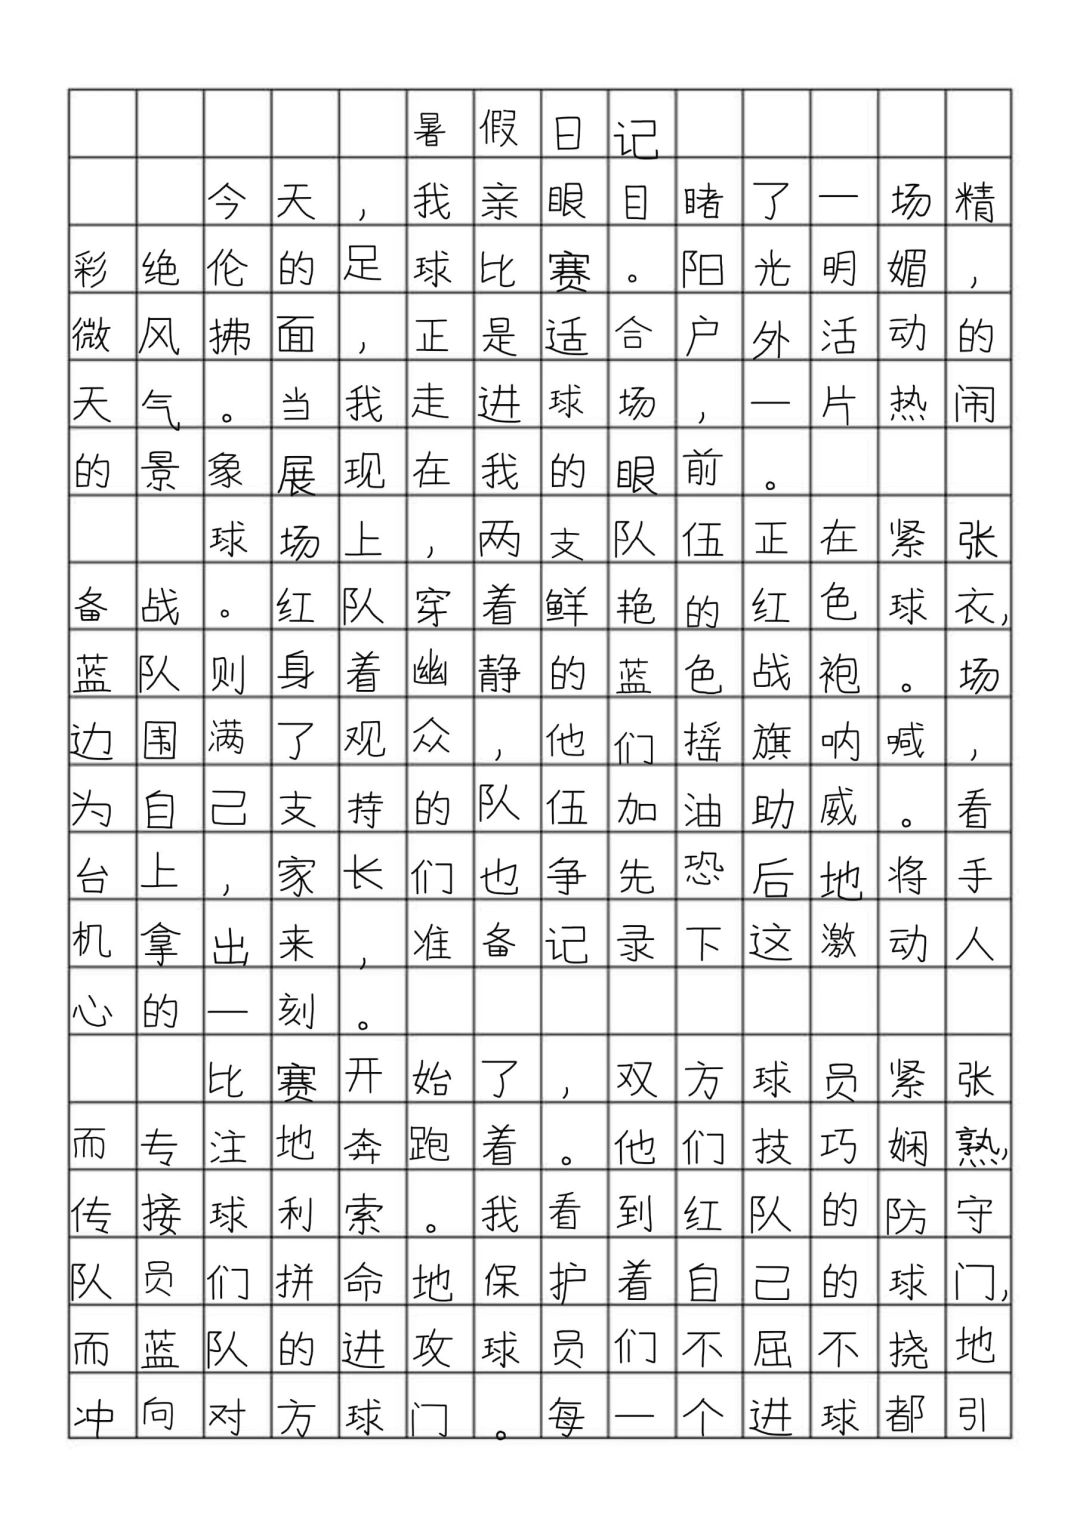 暑假日记
今天，我亲眼目睹了一场精
彩绝伦的足球比赛。阳光明媚，
微风拂面，正是适合户外活动的
天气。当我走进球场，一片热闹
的景象展现在我的眼前。
球场上，两支队伍正在紧张
备战。红队穿着鲜艳的红色球衣，
蓝队则身着幽静的蓝色战袍。场
边围满了观众，他们摇旗呐喊，
为自己支持的队伍加油助威。看
台上，家长们也争先恐后地将手
机拿出来，准备记录下这激动人
心的一刻。
比赛开始了，双方球员紧张
而专注地奔跑着。他们技巧娴熟，
传接球利索。我看到红队的防守
队员们拼命地保护着自己的球门，
而蓝队的进攻球员们不屈不挠地
冲向对方球门。每一个进球都引